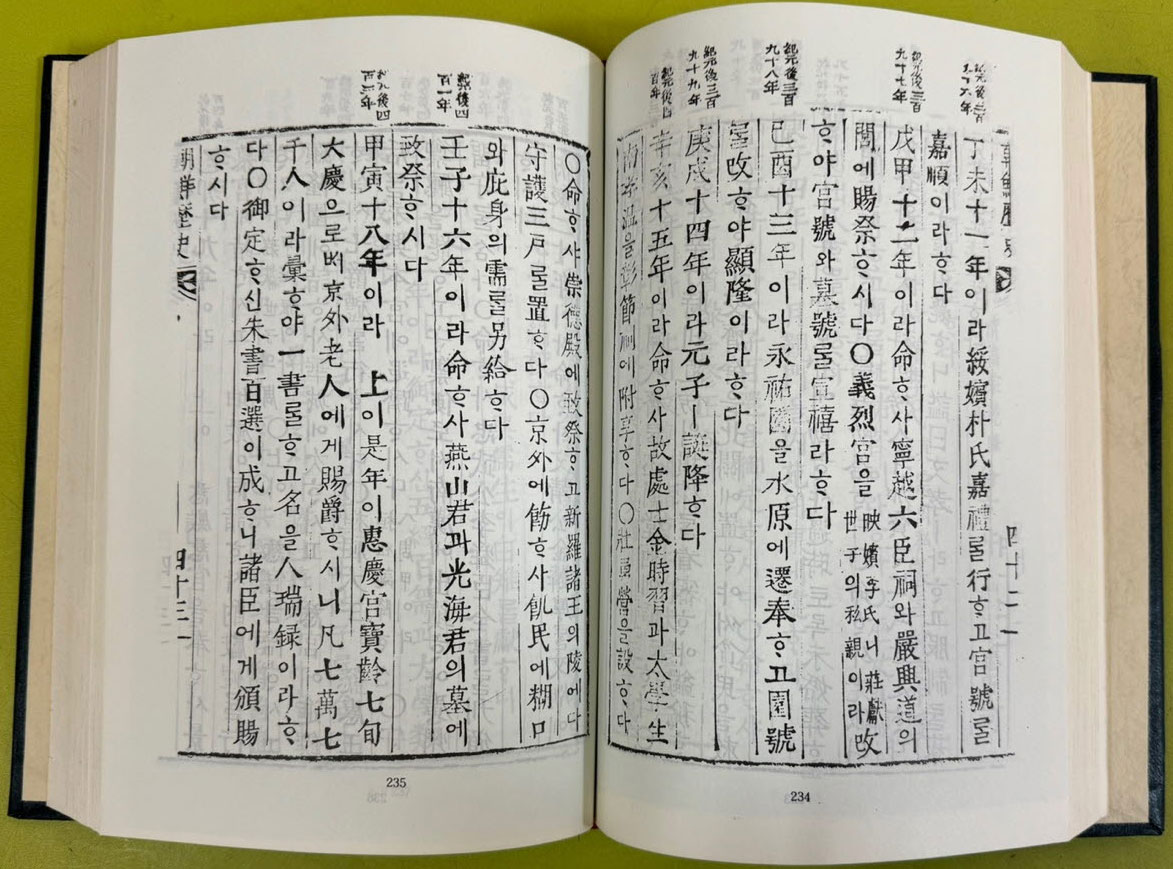 朝鮮歷史
四十二
紀元後三百
九十六年
丁未十一年이라綏嬪朴氏嘉禮ᄅᆞᆯ行ᄒᆞ고宮號ᄅᆞᆯ
嘉順이라ᄒᆞ다
紀元後三百
九十七年
戊申十二年이라命ᄒᆞ사寧越六臣祠와嚴興道의
閭에賜祭ᄒᆞ시다○義烈宮을
映嬪李氏니莊獻
世子의私親이라
改
ᄒᆞ야宮號와墓號ᄅᆞᆯ宣禧라ᄒᆞ다
紀元後三百
九十八年
己酉十三年이라永祐園을水原에遷奉ᄒᆞ고園號
ᄅᆞᆯ改ᄒᆞ야顯隆이라ᄒᆞ다
紀元後三百
九十九年
庚戌十四年이라元子ㅣ誕降ᄒᆞ다
紀元後四
百年
辛亥十五年이라命ᄒᆞ사故處士金時習과太學生
南孝溫을彰節祠에附享ᄒᆞ다○壯勇營을設ᄒᆞ다
234
○命ᄒᆞ샤崇德殿에致祭ᄒᆞ고新羅諸王의陵에다
守護三戶ᄅᆞᆯ置ᄒᆞ다○京外에飭ᄒᆞ사飢民에糊口
와庇身의需ᄅᆞᆯ另給ᄒᆞ다
紀元後四
百一年
壬子十六年이라命ᄒᆞ사燕山君과光海君의墓에
致祭ᄒᆞ시다
紀元後四
百三年
甲寅十八年이라 上이是年이惠慶宮寶齡七旬
大慶으로ᄡᅥ京外老人에게賜爵ᄒᆞ시니凡七萬七
千人이라彙ᄒᆞ야一書ᄅᆞᆯᄒᆞ고名을人瑞録이라ᄒᆞ
다○御定ᄒᆞ신朱書百選이成ᄒᆞ니諸臣에게頒賜
ᄒᆞ시다
朝鮮歷史
四十三
235